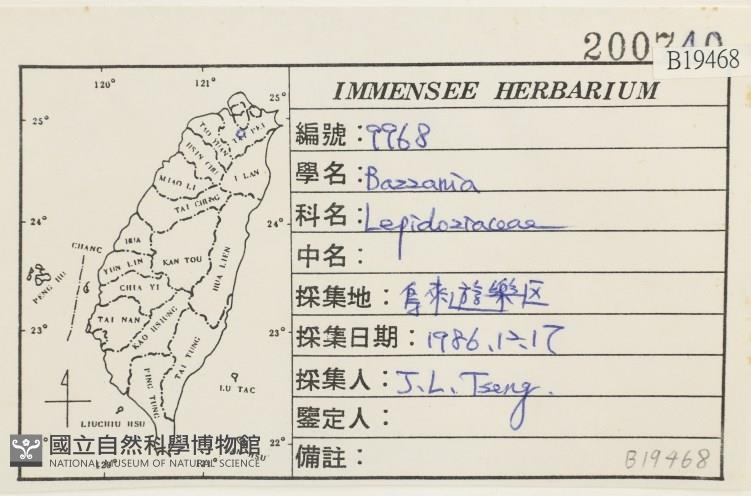 B19468
IMMENSEE HERBARIUM
編號：9968
學名：Bazzania
科名：Lepidoziaceae
中名：
採集地：烏來遊樂区
採集日期：1986.12.17
採集人：J.L. Tseng.
鑒定人：
備註：
B19468
120° 121°
25° 25°
TAO YUAN
TAI PEI
HSIN CHU
I LAN
MIAO LI
TAI CHUNG
24° 24°
HUA
CHANG
YUN LIN
KAN TOU
HUA LIEN
PENG HU
CHIA YI
TAI NAN
KAO HSIUNG
23° 23°
TAI TUNG
PING TUNG
LU TAO
LIUCHIU HSU
22°
120° 121°
國立自然科學博物館
NATIONAL MUSEUM OF NATURAL SCIENCE